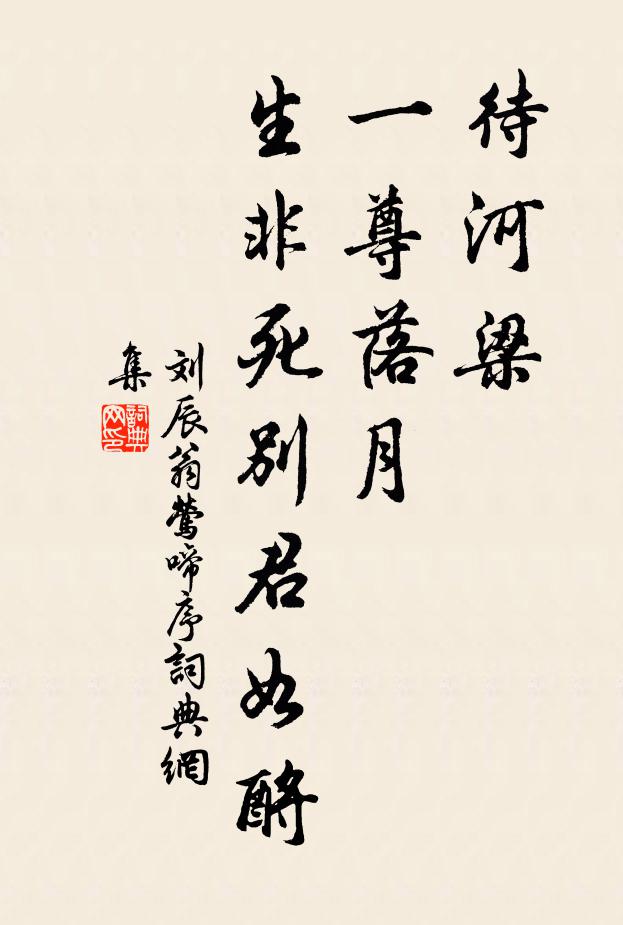 待河梁
一尊落月
生非死别君如酹
刘辰翁莺啼序詞典網
集
詞典
网印